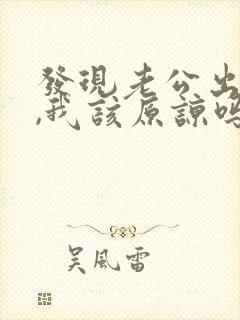 發現老公出
,我該原諒嗎
吳風雷